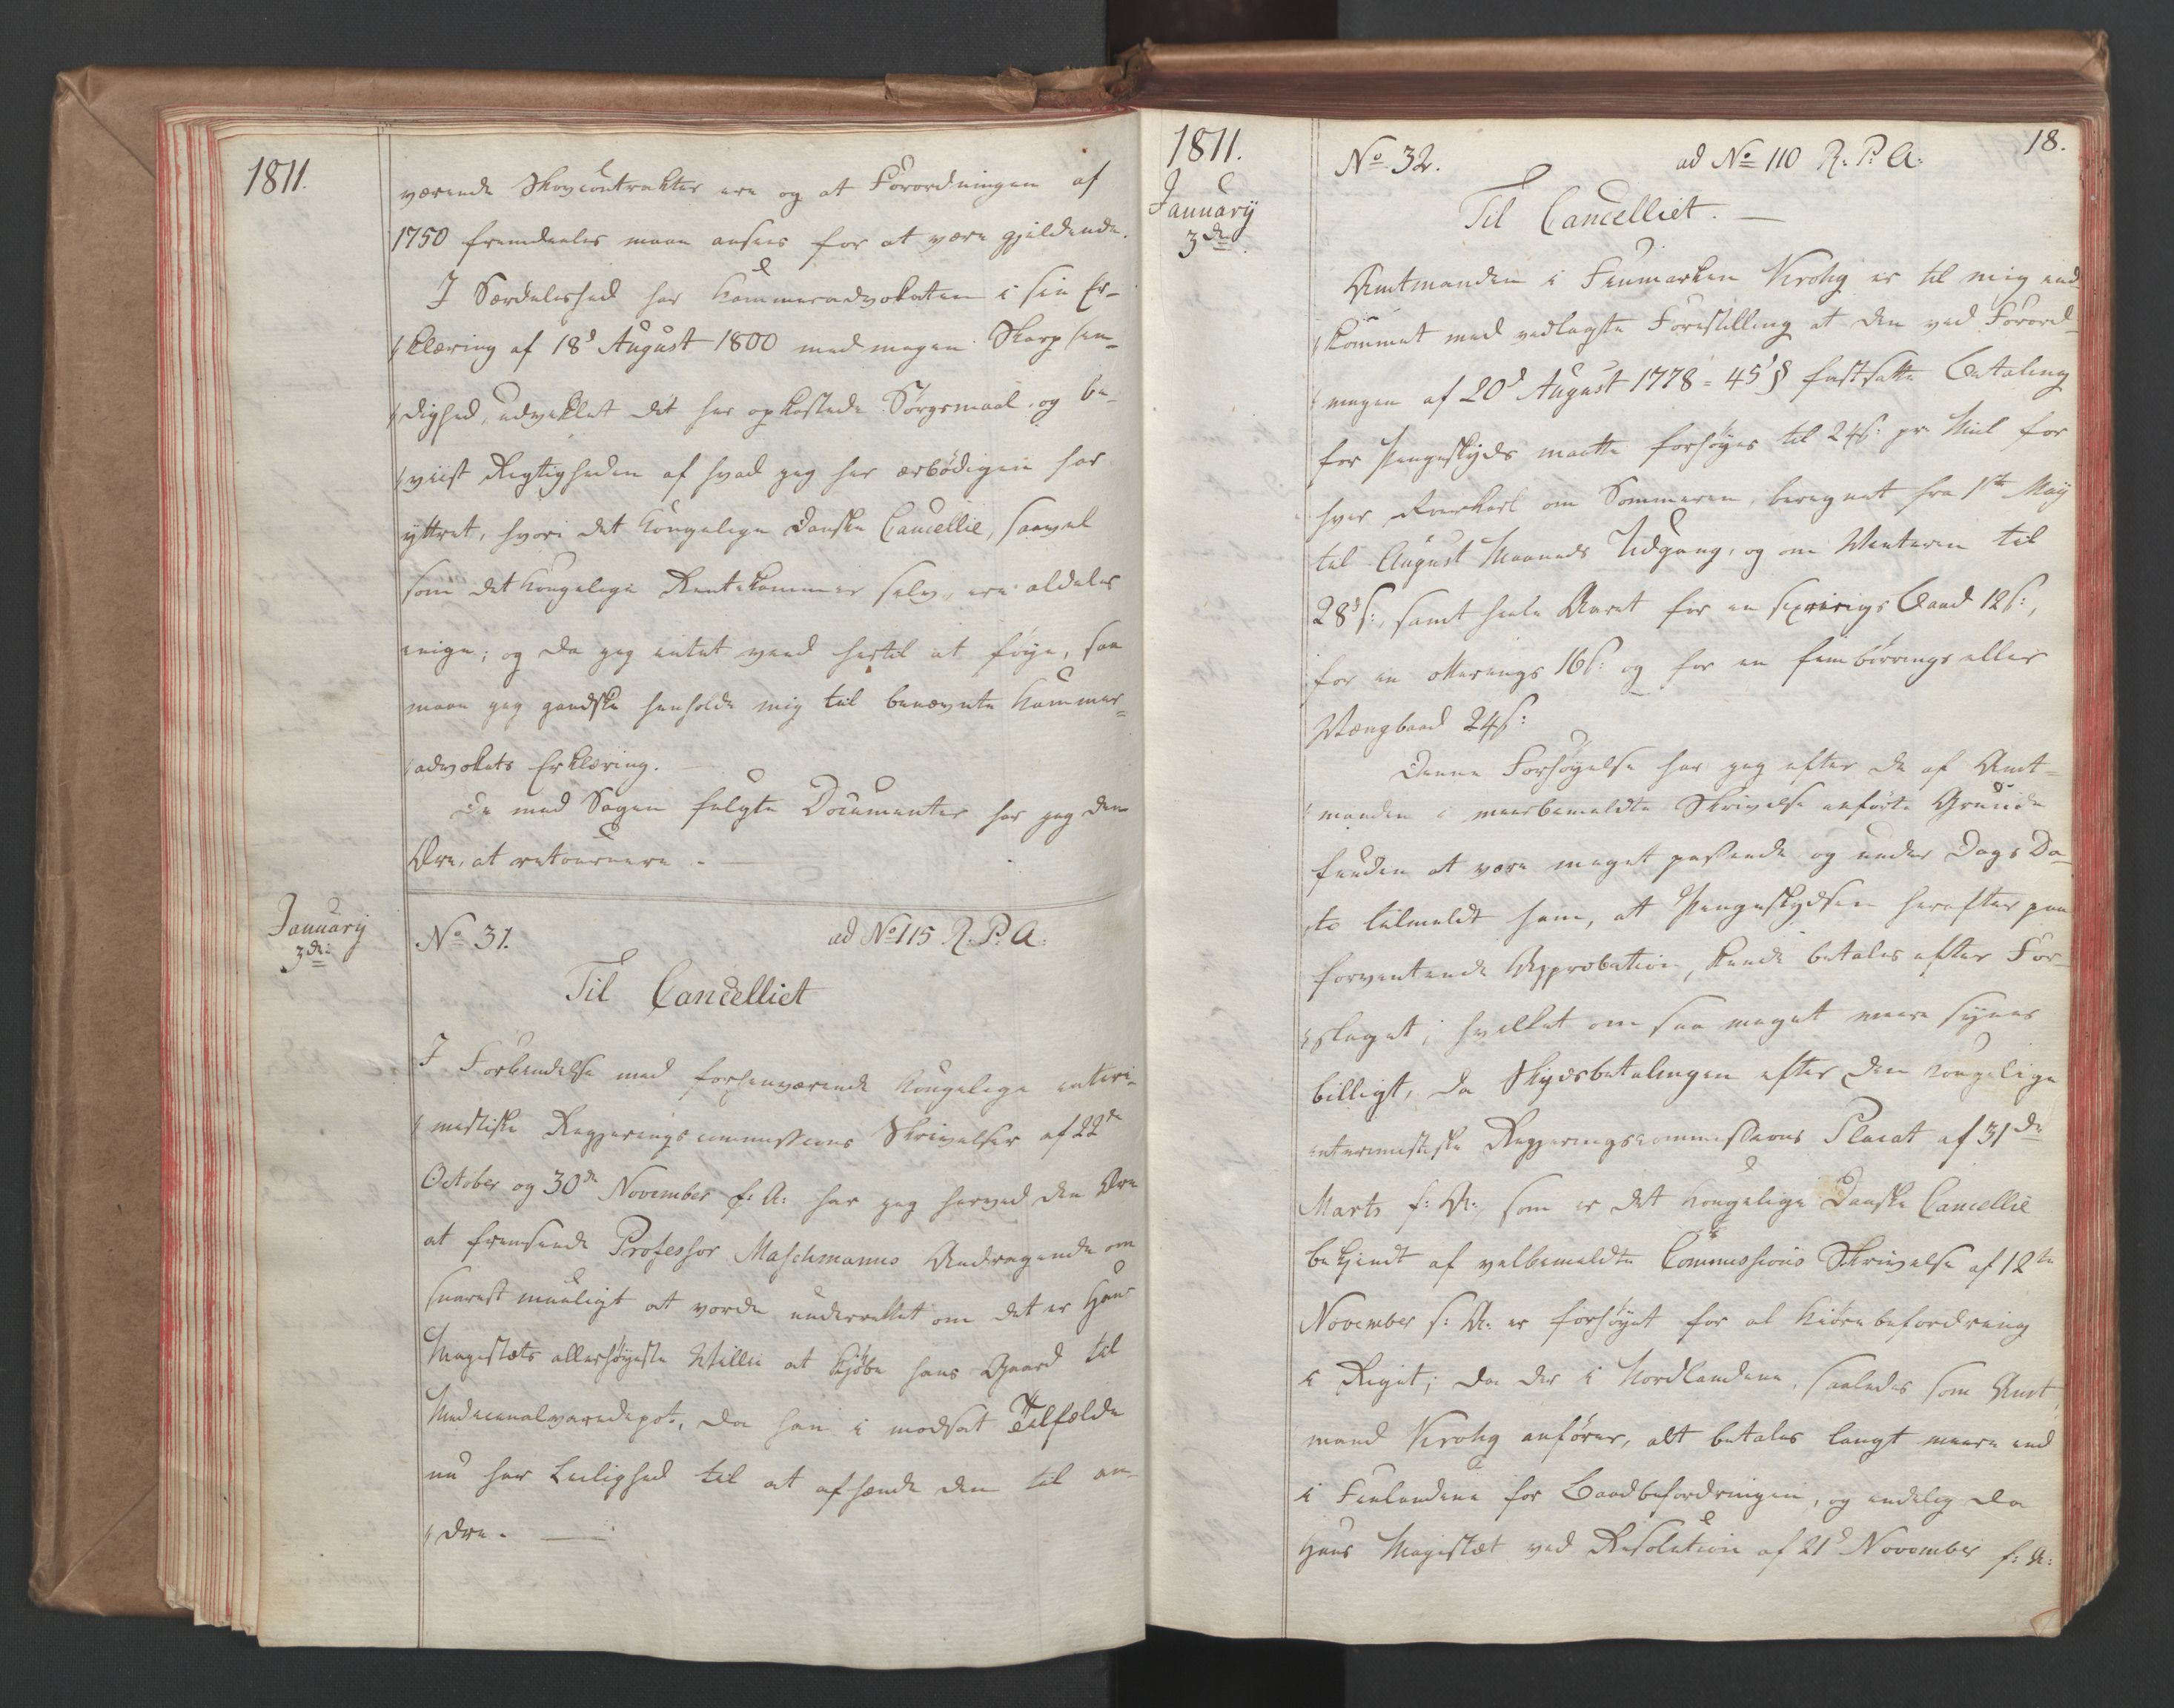 1811.
værende Skovcontrakter ere og at Forordningen af
1750 fremdeeles maae ansees for at være gjeldende.
I Særdeleshed har Kammeradvokaten i sin Er-
klæring af 18d August 1800 med megen Skarpsin-
dighed, udviklet det her opkastede Sørgsmaal og be-
viist Rigtigheden af hvad jeg her ærbödigen har
yttret, hvori det Kongelige Danske Cancellie, saavel
som det Kongelige Rentekammer selv, ere aldeles
enige; og da jeg intet veed hertil at föye, saa
maae jeg gandske henholde mig til benævnte Kammer-
advokats Erklæring.
De med Sagen fulgte Documenter har jeg den
Ære, at retournere.
January
3de:
No 31.
ad No 115 R: P: A:
Til Cancelliet
I Forbindelse med forhenværende Kongelige interi-
mistiske Regjeringscommissions Skrivelser af 22de
October og 30de November f: A: har jeg herved den Ære
at fremsende Professor Maschmanns Andragende om
snarest mueligt at vorde underrettet om det er Hans
Majestæts allerhöyeste Willie at kjöbe hans Gaard til
Medicinalvaredepot, da han i modsat Tilfælde
nu har Leilighed til at afhænde den til an-
dre.
1811.
January
3de.
18.
No 32.
ad No 110 R: P: A:
Til Cancelliet.
Amtmanden i Finmarken Krohg er til mig ind-
kommet med vedlagte Forestilling at den ved Forord-
ningen af 20d August 1778 = 45 § fastsatte Betaling
for Pengeskyds maatte forhöyes til 24 s: pr Miil for
hver Roerkarl om Sommeren, beregnet fra 1ste May
til August Maaneds Udgang, og om Winteren til
28 s:, samt heele Aaret for en sexrings Baad 12 s:,
for en ottrings 16 s: og for en fembörings eller
Vængbaad 24 s:
Denne Forhöyelse har jeg efter de af Amt-
manden i meerbemeldte Skrivelse anförte Grunde
funden at være meget passende og under Dags Da-
to tilmeldt ham, at Pengeskydsen herefter paa
forventende Approbation, kunde betales efter For-
slaget; hvilket om saa meget meere synes
billigt, da Skydsbetalingen efter den Kongelige
interimistiske Regjeringscommissions Placat af 31de
Marts f: A:, som er det Kongelige Danske Cancellie
bekjendt af velbemeldte Commissions Skrivelse af 12te
November s: A: er forhöyet for al Kiörebefordring
i Riget; da der i Nordlandene, saaledes som Amt-
mand Krohg anförer, alt betales langt meere end
i Finlandene for Baadbefordringen, og endelig da
Hans Majestæt ved Resolution af 21d November f: A: